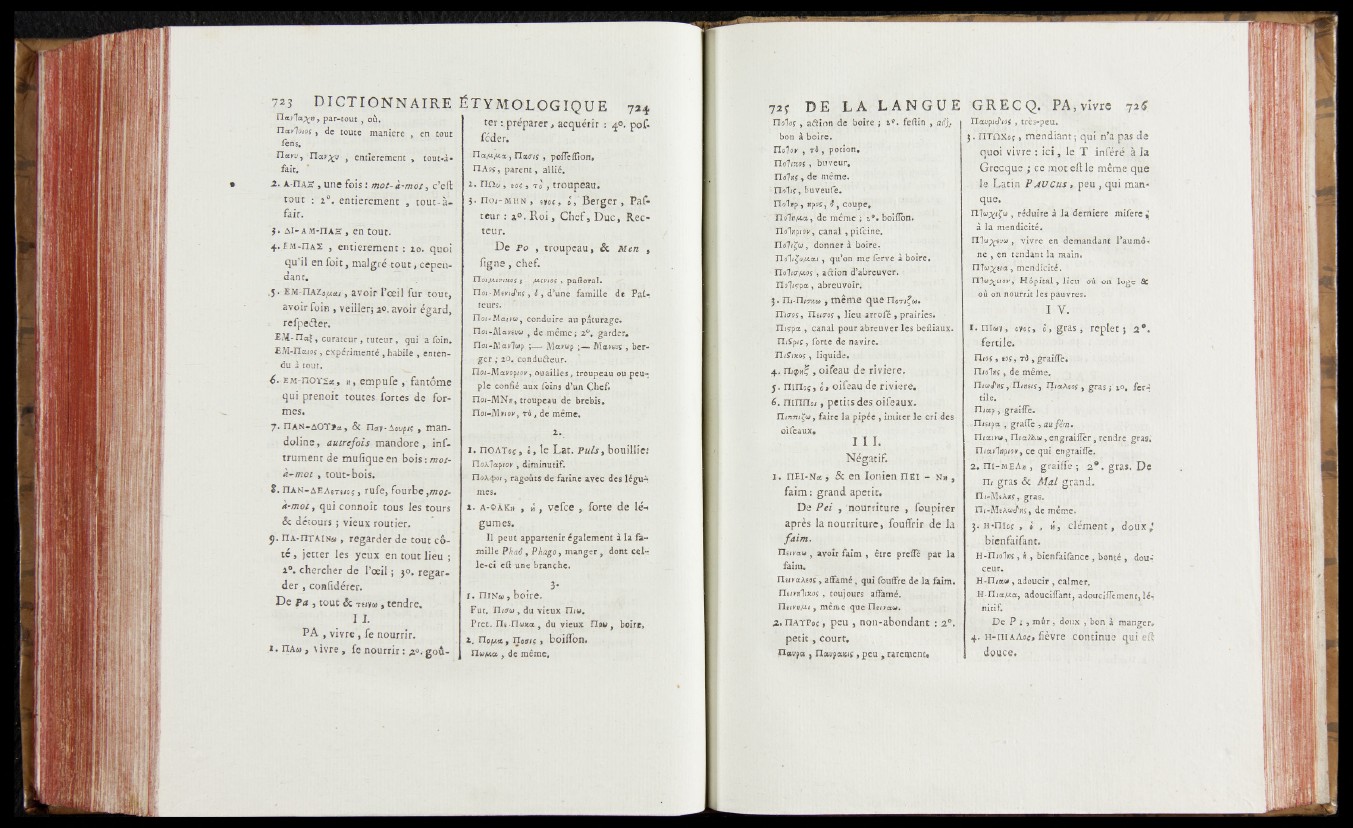 723 DICTIONNAIRE ÉTYMOLOGIQUE 724
Παν]αχη, par-tout, où.
Παν]οιος, de toute maniere, en tout
ſens.
Πανυ, Παγχυ, entierement, tout-à-
fait.
2. Α-ΠΑΞ, une fois : mot-à-mot, c'eſt
tout : 2°. entierement, tout-à-
fair.
3. ΔΙ-ΑΜ-ΠΑΞ, en tout.
4. ΕΜ-ΠΑΣ, entierement : 2o. quoi
qu'il en ſoit, malgré tout, cepen-
dant.
5. ΕΜ-ΠΑΖομαι, avoir l'œil ſur tout,
avoir ſoin, veiller; 2o. avoir égard,
reſpecter.
ΕΜ-Παξ, curateur, tuteur, qui a ſoin.
ΕΜ-Παιος, expérimenté, habile, enten-
du à tout.
6. ΕΜ-ΠΟΥΣα, η, empuſe, fantôme
qui prenoit toutes ſortes de for-
mes.
7. ΠΑΝ-ΔΟΥΡα, & Παν-Δουρις, man-
doline, autrefois mandore, inſ-
trument de muſique en bois : mot-
à-mot, tout-bois.
8. ΠΑΝ-ΔΕΛετιος, ruſe, fourbe, mot-
à-mot, qui connoît tous les tours
& détours ; vieux routier.
9. ΠΑ-ΠΤΑΙΝω, regarder de tout cô-
té, jetter les yeux en tout lieu ;
2°. chercher de l'œil ; 3o. regar-
der, conſidérer.
De Pa, tout & τεινω, tendre.
II.
PA, vivre, ſe nourrir.
1. ΠΑω, vivre, ſe nourrir : 2o. goû-
ter : préparer, acquérir : 4o. poſ-
ſéder.
Παμμα, Πασις, poſſeſſion.
ΠΑος, parent, allié.
2. ΠΩυ, εος, τὸ, troupeau.
3. ΠΟΙ-ΜΗΝ, ενος, ὁ, Berger, Paſ-
teur : 2o. Roi, Chef, Duc, Rec-
teur.
De Po, troupeau, & Men,
ſigne, chef.
Ποιμενικος, μενιος, paſtoral.
Ποι-Μενιδης, ὁ, d'une famille de Paſ-
teurs.
Ποι-Μαινω, conduire au pâturage.
Ποι-Μανευω, de même; 2°. garder.
Ποι-Μαν]ωρ ;— Μανωρ ;— Μανευς, ber-
ger ; 2o. conducteur.
Ποι-Μανοριον, ouailles, troupeau ou peu-
ple confié aux ſoins d'un Chef.
Ποι-ΜΝη, troupeau de brebis.
Ποι-Μνιον, τὸ, de même.
2.
1. ΠΟΛΤος, ὁ, le Lat. Puls, bouillie:
Πολ]αριον, diminutif.
Πολφοι, ragoûts de farine avec des légu-
mes.
2. Α-ΦΑΚη, ἡ, veſce, ſorte de lé-
gumes.
Il peut appartenir également à la fa-
mille Phad, Phago, manger, dont cel-
le-ci eſt une branche.
3.
1. ΠΙΝω, boire.
Fut. Πισω, du vieux Πιω.
Pret. Πε-Πωκα, du vieux Ποω, boire.
2. Πομα, Ποσις, boiſſon.
Πωμα, de même.
725 DE LA LANGUE GRECQ. PA, vivre 726
Πο]ος, action de boire ; 2°. feſtin, adj.
bon à boire.
Πο]ον, τὸ, potion.
Πο]ικος, buveur.
Πο]ης, de même.
Πο]ις, buveuſe.
Πο]ηρ, ηρος, ὁ, coupe.
Πο]ημα, de même ; 2°. boiſſon.
Πο]ηριον, canal, piſcine.
Πο]ιζω, donner à boire.
Πο]ιζομαι, qu'on me ſerve à boire.
Πο]ισμος, action d'abreuver.
Πο]ιςρα, abreuvoir.
3. Πι-Πισκω, même que Ποτιζω.
Πισος, Πεισος, lieu arroſé, prairies.
Πιςρα, canal pour abreuver les beſtiaux.
Πιςρις, ſorte de navire.
Πιςικος, liquide.
4. Πιφηξ, oiſeau de riviere.
5. ΠΙΠος, ὁ, oiſeau de riviere.
6. ΠΙΠΠοι, petits des oiſeaux.
Πιππιζω, faire la pipée, imiter le cri des
oiſeaux.
III.
Négatif.
1. ΠΕΙ-Να, & en Ionien ΠΕΙ - Νη,
faim : grand apetit.
De Pei, nourriture, ſoupirer
après la nourriture, ſouffrir de la
faim.
Πειναω, avoir faim, être preſſé par la
faim.
Πειναλεος, affamé, qui ſouffre de la faim.
Πεινα]ικος, toujours affamé.
Πεινημι, même que Πειναω.
2. ΠΑΥΡος, peu, non-abondant : 2°.
petit, court.
Παυρα, Παυρακις, peu, rarement.
Παυριδιος, très-peu.
3. ΠΤΩΧος, mendiant ; qui n'a pas de
quoi vivre : ici, le T inſéré à la
Grecque ; ce mot eſt le même que
le Latin PAUCUS, peu, qui man-
que.
Π]ωχιζω, réduire à la derniere miſere ;
à la mendicité.
Π]ωχευω, vivre en demandant l'aumô-
ne, en tendant la main.
Π]ωχεια, mendicité.
Π]ωχειον, Hôpital, lieu où on loge &
où on nourrit les pauvres.
IV.
1. ΠΙων, ονος, ὁ, gras, replet ; 2°.
fertile.
Πιος, εος, τὸ, graiſſe.
Πιο]ης, de même.
Πιωδης, Πιοεις, Πιαλεος, gras ; 2o. fer-
tile.
Πιαρ, graiſſe.
Πιειρα, graſſe, au fém.
Πιαινω, Πιαλλω, engraiſſer, rendre gras.
Πιαν]ηριον, ce qui engraiſſe.
2. ΠΙ-ΜΕΛη, graiſſe ; 2°. gras. De
Πι gras & Mal grand.
Πι-Μελης, gras.
Πι-Μελωδης, de même.
3. Η-ΠΙος, ὁ, ἡ, clément, doux,
bienfaiſant.
Η-Πιο]ης, ἡ, bienfaiſance, bonté, dou-
ceur.
Η-Πιαω, adoucir, calmer.
Η-Πιαμα, adouciſſant, adouciſſement, lé-
nitif.
De Pi, mûr, doux, bon à manger.
4. Η-ΠΙΑΛος, fiévre continue qui eſt
douce.